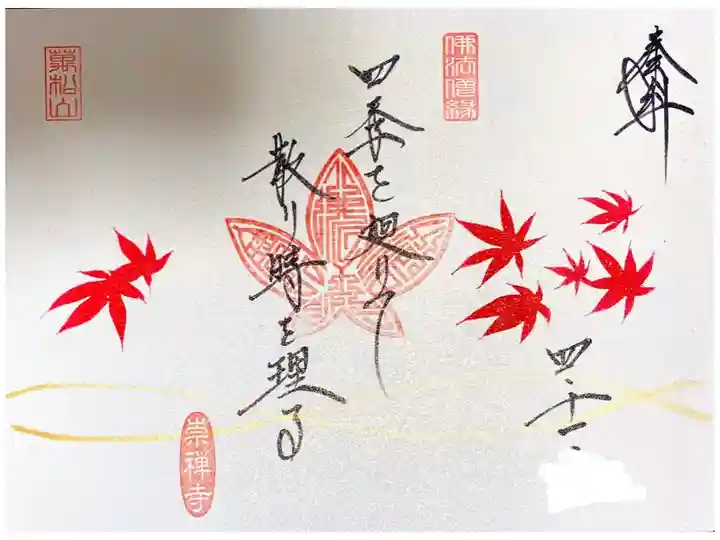 奉拝
四・十一・
佛法僧縁
四季を廻りて
散り時を理る
萬松山
崇禅寺